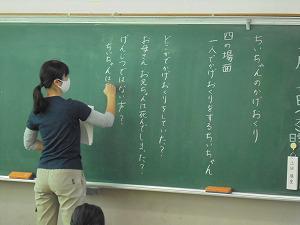 ちいちゃんのかげおくり
四の場面
一人でかげおくりをするちいちゃん
どこでかげおくりをしていた?
お母さん、お兄ちゃんは死んでしまった?
げんじつではない方?
ちいちゃんは